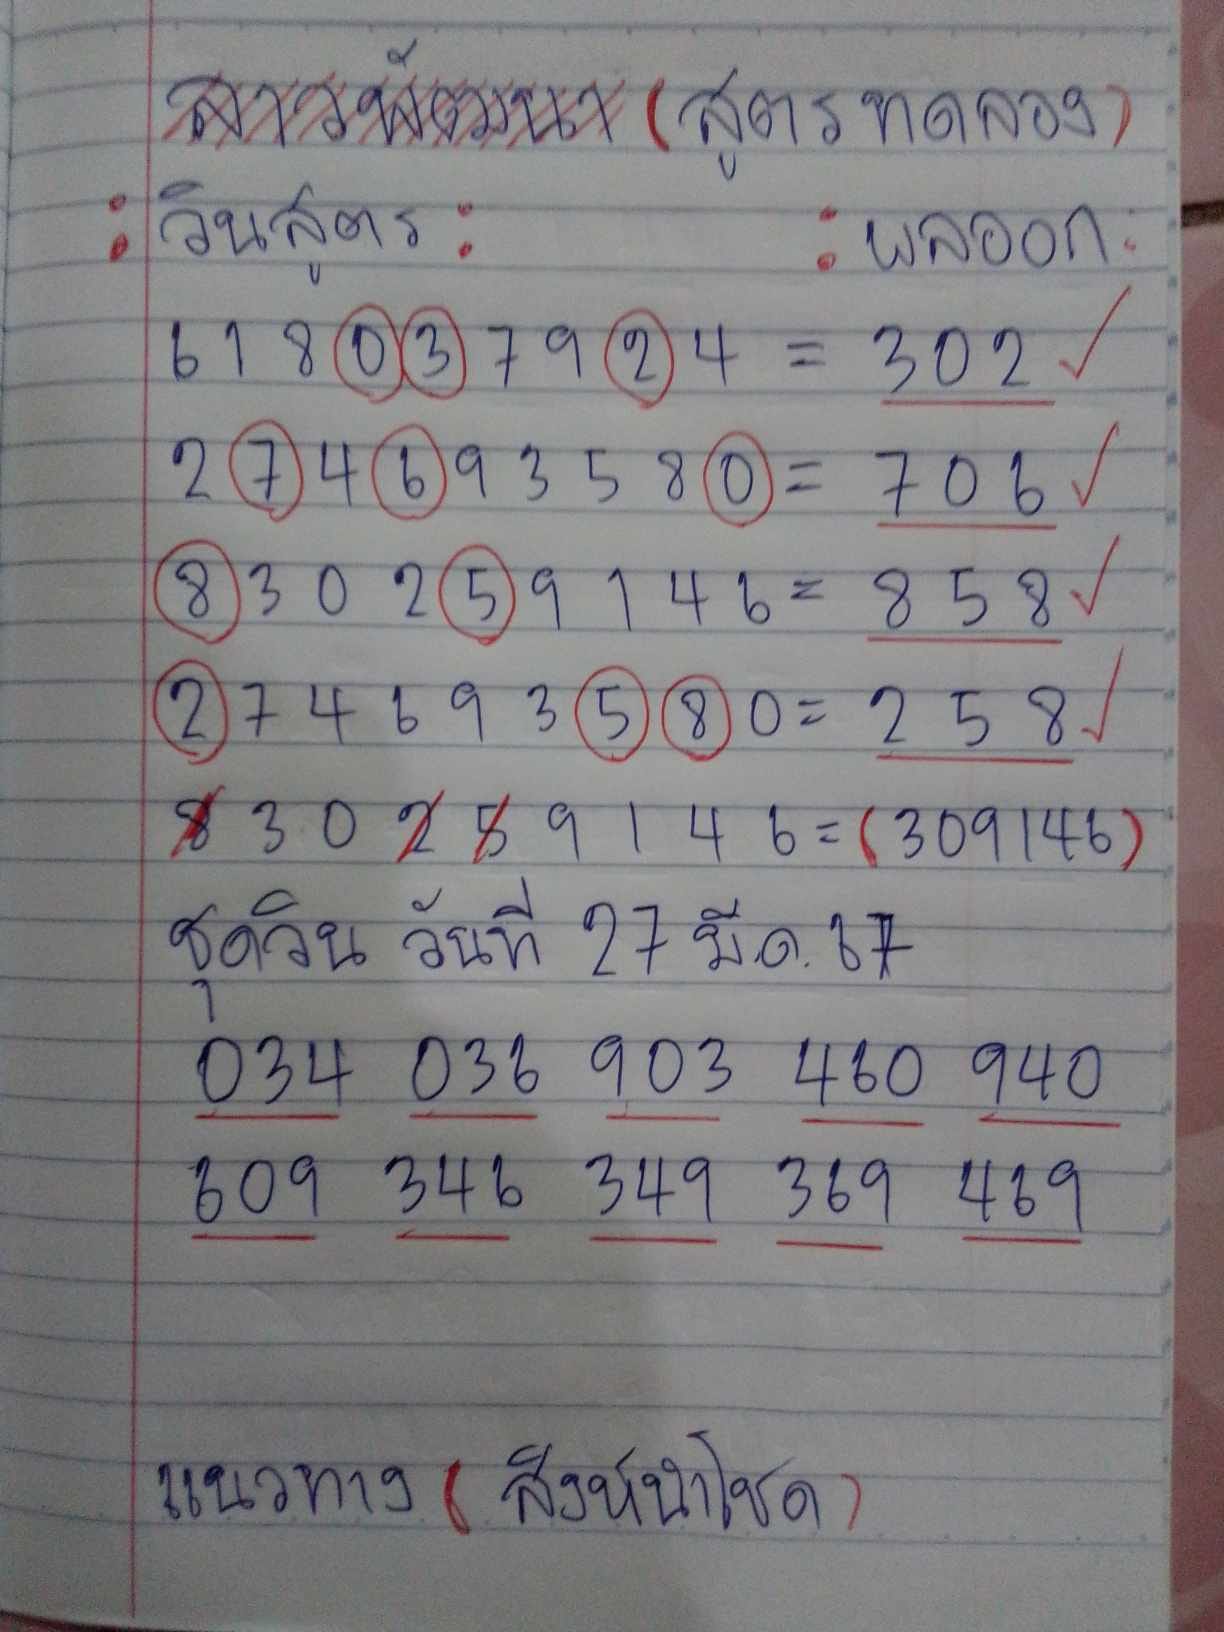 ลาวพัฒนา (สูตรทดลอง)
: วินสูตร : : ผลออก :
618037924 = 302 ✓
274693580 = 706 ✓
830259146 = 858 ✓
274693580 = 258 ✓
830259146 = (309146)
ชุดวิน วันที่ 27 มี.ค. 67
034 036 903 460 940
609 346 349 369 469
แนวทาง ( สิงห์นำโชค )